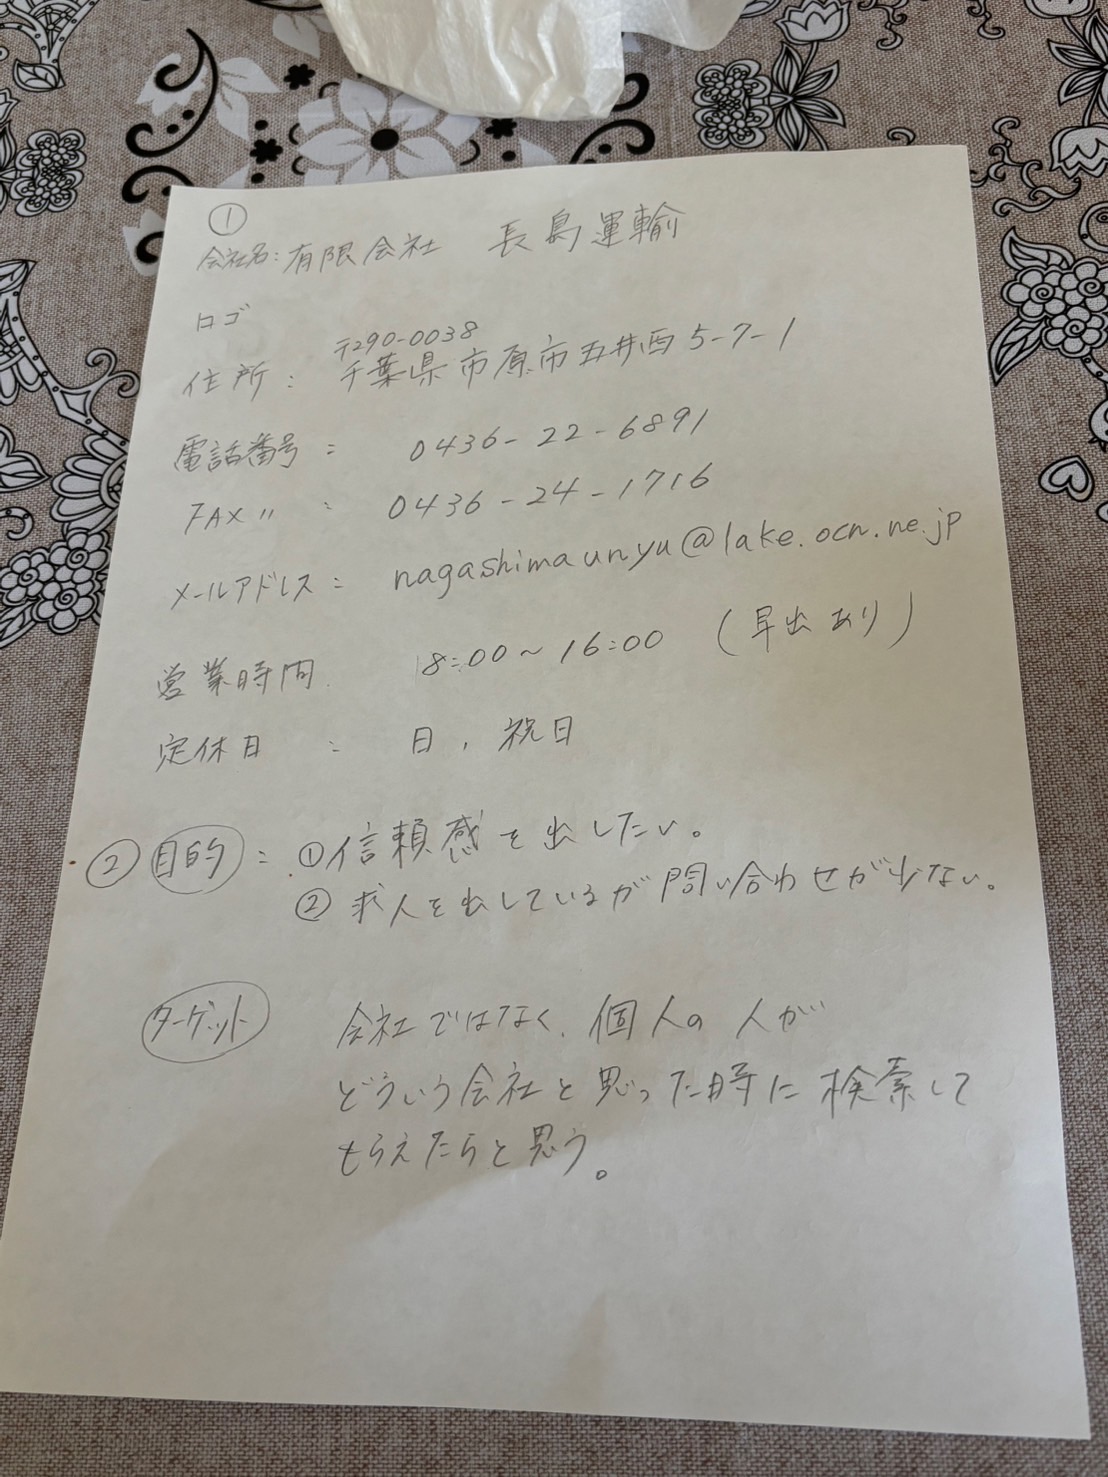 ①
会社名：有限会社 長島運輸
ロゴ
〒290-0038
住所： 千葉県市原市五井西5-7-1
電話番号： 0436-22-6891
FAX〃： 0436-24-1716
メールアドレス： nagashimaunyu@lake.ocn.ne.jp
営業時間 8:00～16:00 （早出あり）
定休日： 日，祝日
②目的：①信頼感を出したい。
②求人を出しているが問い合わせが少ない。
ターゲット 会社ではなく、個人の人が
どういう会社と思った時に検索して
もらえたらと思う。